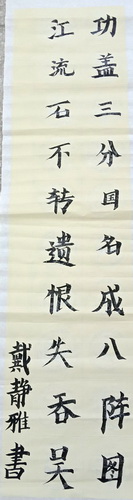 功盖三分国名成八阵图
江流石不转遗恨失吞吴
戴静雅书